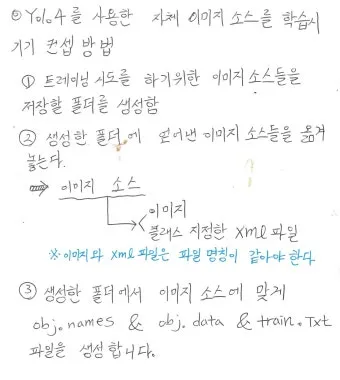 ◎ Yolo4를 사용한 자체 이미지 소스를 학습시
키기 컨셉 방법
① 트레이닝 시도를 하기위한 이미지 소스들을
저장할 폴더를 생성함
② 생성한 폴더에 얻어낸 이미지 소스들을 옮겨
놓는다.
⇒ 이미지 소스
이미지
클래스 지정한 xml 파일
※ 이미지와 xml 파일은 파일 명칭이 같아야 한다
③ 생성한 폴더에서 이미지 소스에 맞게
obj.names & obj.data & train.Txt
파일을 생성합니다.